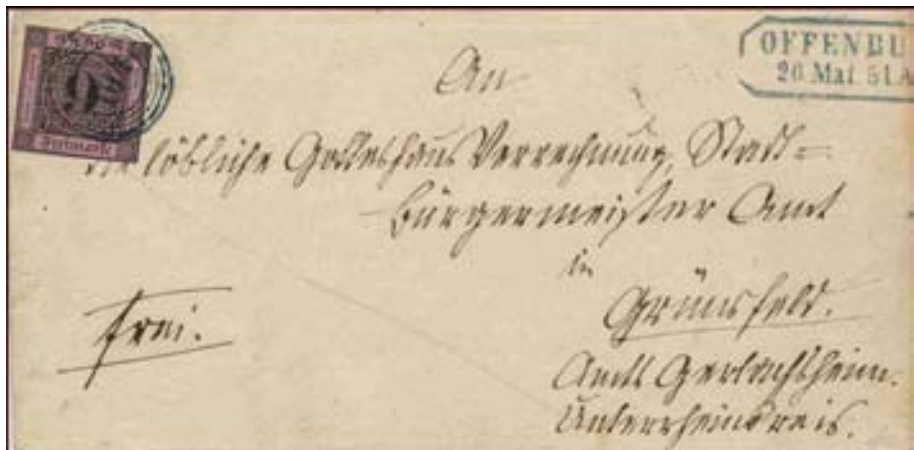 OFFENBU
20 Mai 51. A
9
Freimarke
An
die löbliche Gotteshaus Verrechnung, Stadt=
Bürgermeister Amt
in
Grünsfeld.
frei.
Amts Gerlachsheim.
Unterrheinkreis.